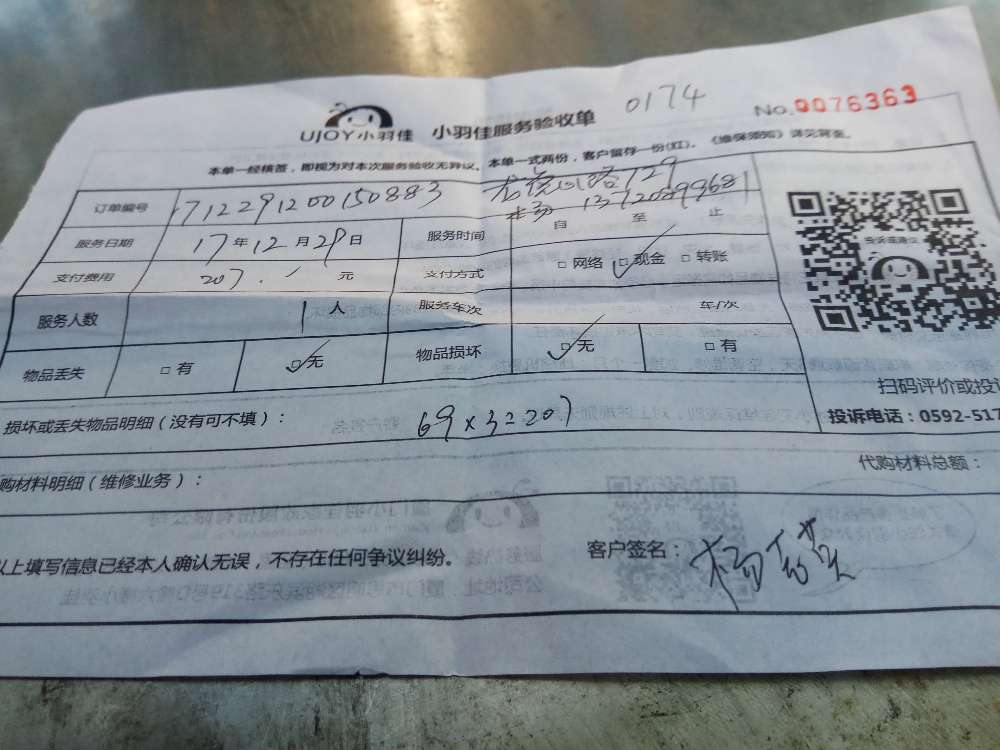 UJOY小羽佳 小羽佳服务验收单 0174 No.0076363
本单一经核签，即视为对本次服务验收无异议。本单一式两份，客户留存一份(红)。《维保须知》详见背面。
龙虎山路129
订单编号 71229120015088 3 杨 13720899681
服务日期 17年12月29日 服务时间 自 至 止
支付费用 207.1 元 支付方式 □网络 □现金 □转账
服务人数 1人 服务车次 车/次
物品丢失 □有 □无 物品损坏 □无 □有
扫码评价或投
损坏或丢失物品明细（没有可不填）： 69×3=207 投诉电话：0592-517
购材料明细（维修业务）： 代购材料总额：
以上填写信息已经本人确认无误，不存在任何争议纠纷。 客户签名：杨